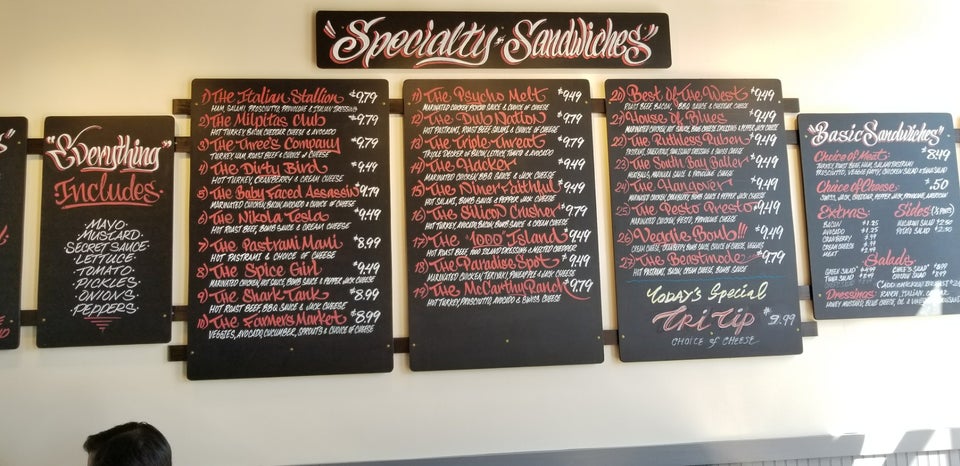 "Specialty Sandwiches"
"Everything"
Includes
MAYO
MUSTARD
SECRET SAUCE
LETTUCE
TOMATO
PICKLES
ONIONS
PEPPERS
1) The Italian Stallion $9.79
HAM, SALAMI, PROSCIUTTO, PROVOLONE & ITALIAN DRESSING
2) The Milpitas Club $9.79
HOT TURKEY, BACON, CHEDDAR CHEESE & AVOCADO
3) The Three's Company $9.79
TURKEY, HAM, ROAST BEEF & CHOICE OF CHEESE
4) The Dirty Bird $9.49
HOT TURKEY, CRANBERRY & CREAM CHEESE
5) The Baby Faced Assassin $9.79
MARINATED CHICKEN, BACON, AVOCADO & CHOICE OF CHEESE
6) The Nikola Tesla $9.49
HOT ROAST BEEF, BOMB SAUCE & CREAM CHEESE
7) The Pastrami Mami $8.99
HOT PASTRAMI & CHOICE OF CHEESE
8) The Spice Girl $9.49
MARINATED CHICKEN, HOT SAUCE, BOMB SAUCE & PEPPER JACK CHEESE
9) The Shark Tank $8.99
HOT ROAST BEEF, B.B.Q. SAUCE & JACK CHEESE
10) The Farmers Market $8.99
VEGGIES, AVOCADO, CUCUMBER, SPROUTS & CHOICE OF CHEESE
11) The Psycho Melt $9.49
MARINATED CHICKEN, PSYCHO SAUCE & CHOICE OF CHEESE
12) The Dub Nation $9.79
HOT PASTRAMI, ROAST BEEF, SALAMI & CHOICE OF CHEESE
13) The Triple Threat $9.79
TRIPLE DECKER OF BACON, LETTUCE, TOMATO & AVOCADO
14) The Hacker $9.49
MARINATED CHICKEN, BBQ SAUCE & JACK CHEESE
15) The Niner Faithful $9.49
HOT SALAMI, BOMB SAUCE & PEPPER JACK CHEESE
16) The Silicon Crusher $9.79
HOT TURKEY, BACON, B.B.Q. SAUCE & JACK CHEESE
17) The 1000 Island $9.49
HOT ROAST BEEF, 1000 ISLAND DRESSING & MELTED CHEDDAR
18) The Paradise Spot $9.49
MARINATED CHICKEN, TERIYAKI, PINEAPPLE & JACK CHEESE
19) The McCarthy Ranch $9.79
HOT TURKEY, PROSCIUTTO, AVOCADO & SWISS CHEESE
20) Best of the West $9.49
ROAST BEEF, BACON, B.B.Q. SAUCE & CHEDDAR CHEESE
21) House of Blues $9.49
MARINATED CHICKEN, HOT SAUCE, BLUE CHEESE DRESSING & PEPPER JACK CHEESE
22) The Ruthless Ruben $9.49
PASTRAMI, SAUERKRAUT, DRESSING & SWISS CHEESE
23) The South Bay Baller $9.49
MEATBALLS, MARINARA SAUCE & PROVOLONE CHEESE
24) The Hangover $9.49
MARINATED CHICKEN, BOMB SAUCE & PEPPER JACK CHEESE
25) The Pesto Presto $9.49
MARINATED CHICKEN, PESTO, PROVOLONE CHEESE
26) Veggie Bomb!!! $9.49
CREAM CHEESE, CRANBERRY, BOMB SAUCE, CHOICE OF CHEESE, VEGGIES
27) The Beastmode $9.79
HOT PASTRAMI, BACON, CREAM CHEESE, BOMB SAUCE
Today's Special
Tri Tip $9.99
CHOICE OF CHEESE
"Basic Sandwiches"
Choice of Meat: $8.49
TURKEY, ROAST BEEF, HAM, SALAMI, PASTRAMI
PROSCIUTTO, VEGGIE PATTY, CHICKEN & TUNA SALAD
Choice of Cheese: $.50
SWISS, JACK, CHEDDAR, PEPPER JACK, PROVOLONE
Extras
BACON $1.25
AVOCADO $1.25
CRANBERRY
CREAM CHEESE
MEAT
Sides
MACARONI SALAD $2.50
POTATO SALAD $2.50
Salads
GREEK SALAD
CHEF'S SALAD
GARDEN SALAD
Dressings: RANCH, ITALIAN, CAESAR,
HONEY MUSTARD, BLUE CHEESE, OIL & VINEGAR